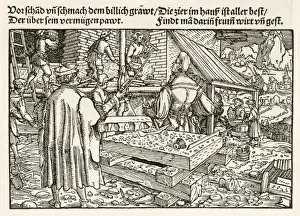 Vor schãd vñ schmach dem billich grawt/ Die zier im hauß ist aller best/
Der über sein vermügen pawt. Findt mã dariñ frum̃ wirt vñ gest.